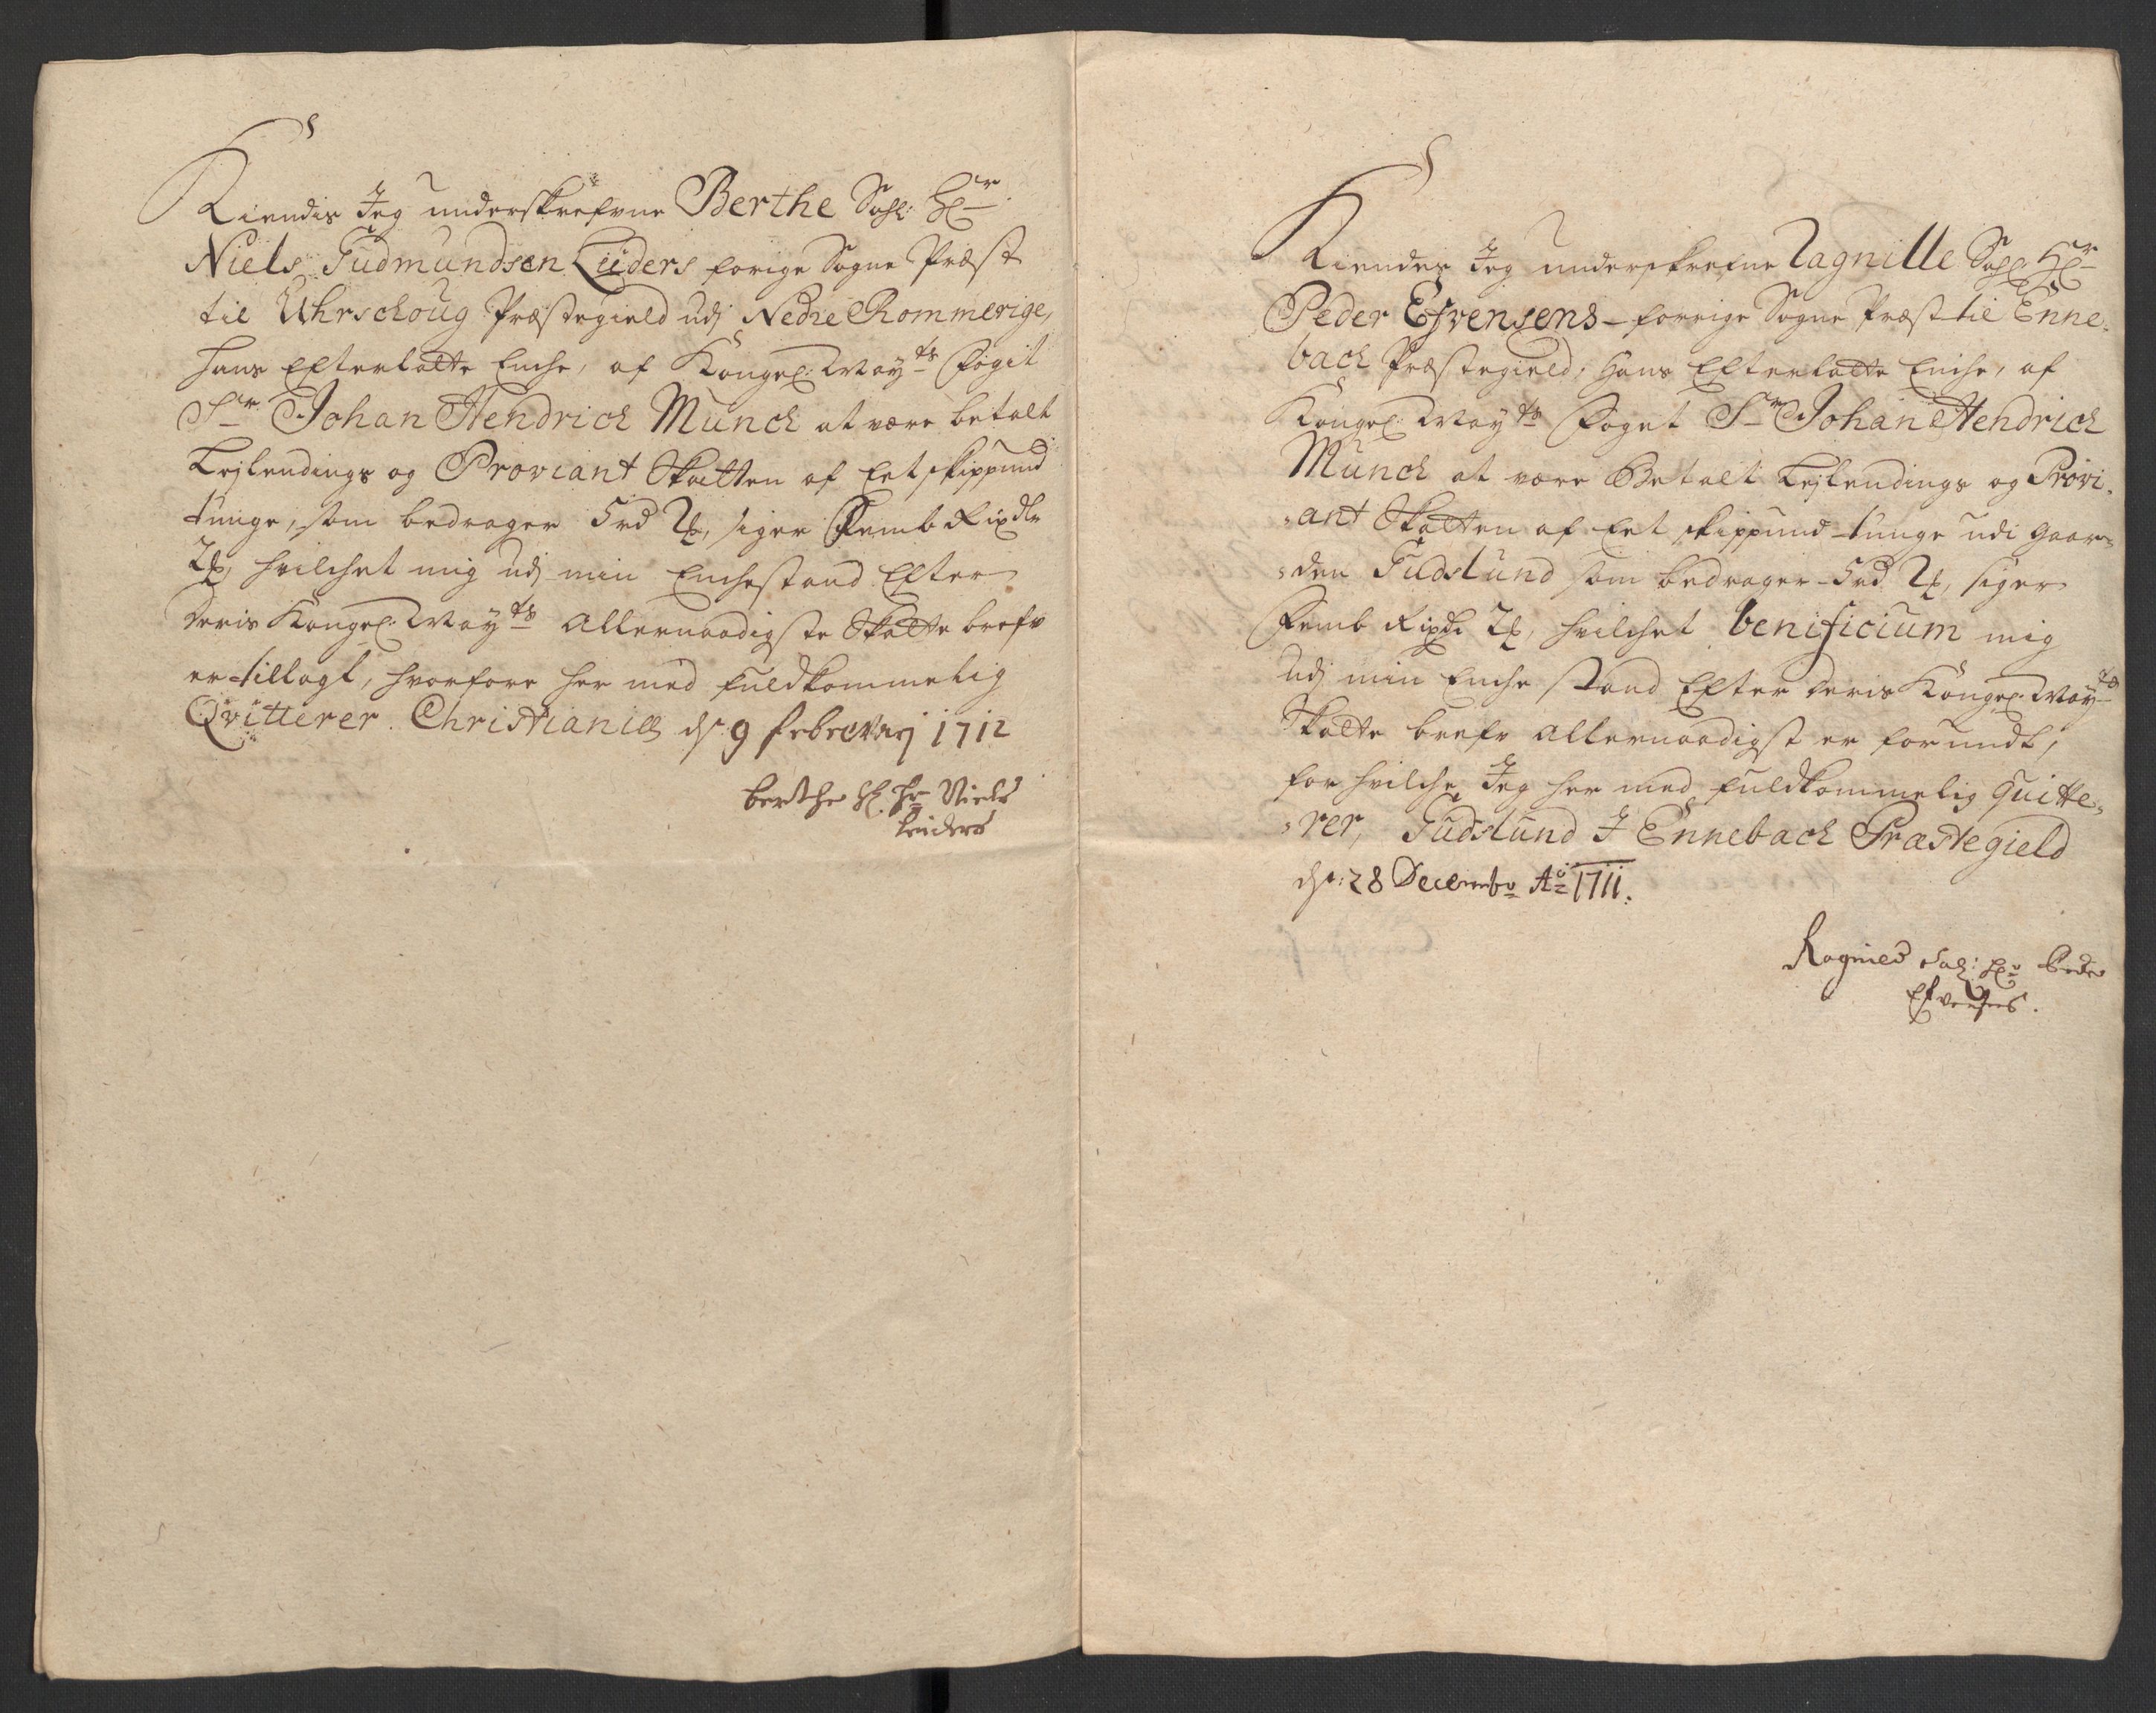 Kiendis Jeg underskrefvne Berthe Sahl: Hr
Niels Gudmundsen Lüders forige Sogne Præst
til Uhrschoug Præstegield udj Nedre Rommerige,
hans Efterlatte Enche, af Kongel: Mayts Fogit
Sr Johan Hendrich Munch at være betalt
Lejlendings og Proviant Skatten af Eet skippund
tunge, som bedrager 5 rd, siger Femb Rixdlr
hvilchet mig udj min Enchestand Efter
deris Kongel: Mayts Allernaadigste Skatte brefv
er tillagt, hvorfore her med fuldkommelig
Qvitterer. Christiania d: 9 febrvarj 1712
berthe Sl. Hr Niels
Lüders
Kiendes Jeg underskrefne Ragnille Sahl: Hr
Peder Efvensens forrige Sogne Præst til Enne-
bach Præstegield, Hans Efterlatte Enche, af
Kongel: Mayts Foget Sr Johan Hendrich
Munch at være Betalt Lejlendings og Provi-
ant Skatten af Eet skippund tunge udi gaar-
den Gudslund som bedrager 5 rd, siger
Femb Rixdr, hvilchet benificium mig
udj min Enche stand Efter deris Kongel: Mayts
Skatte brefv allernaadigst er forundt,
for hvilche Jeg her med fuldkommelig quitte-
rer, Gudslund J Ennebach Præstegield
d: 28 Decembr Ao 1711.
Ragnild Sal: Hr Peder
Efvensens.